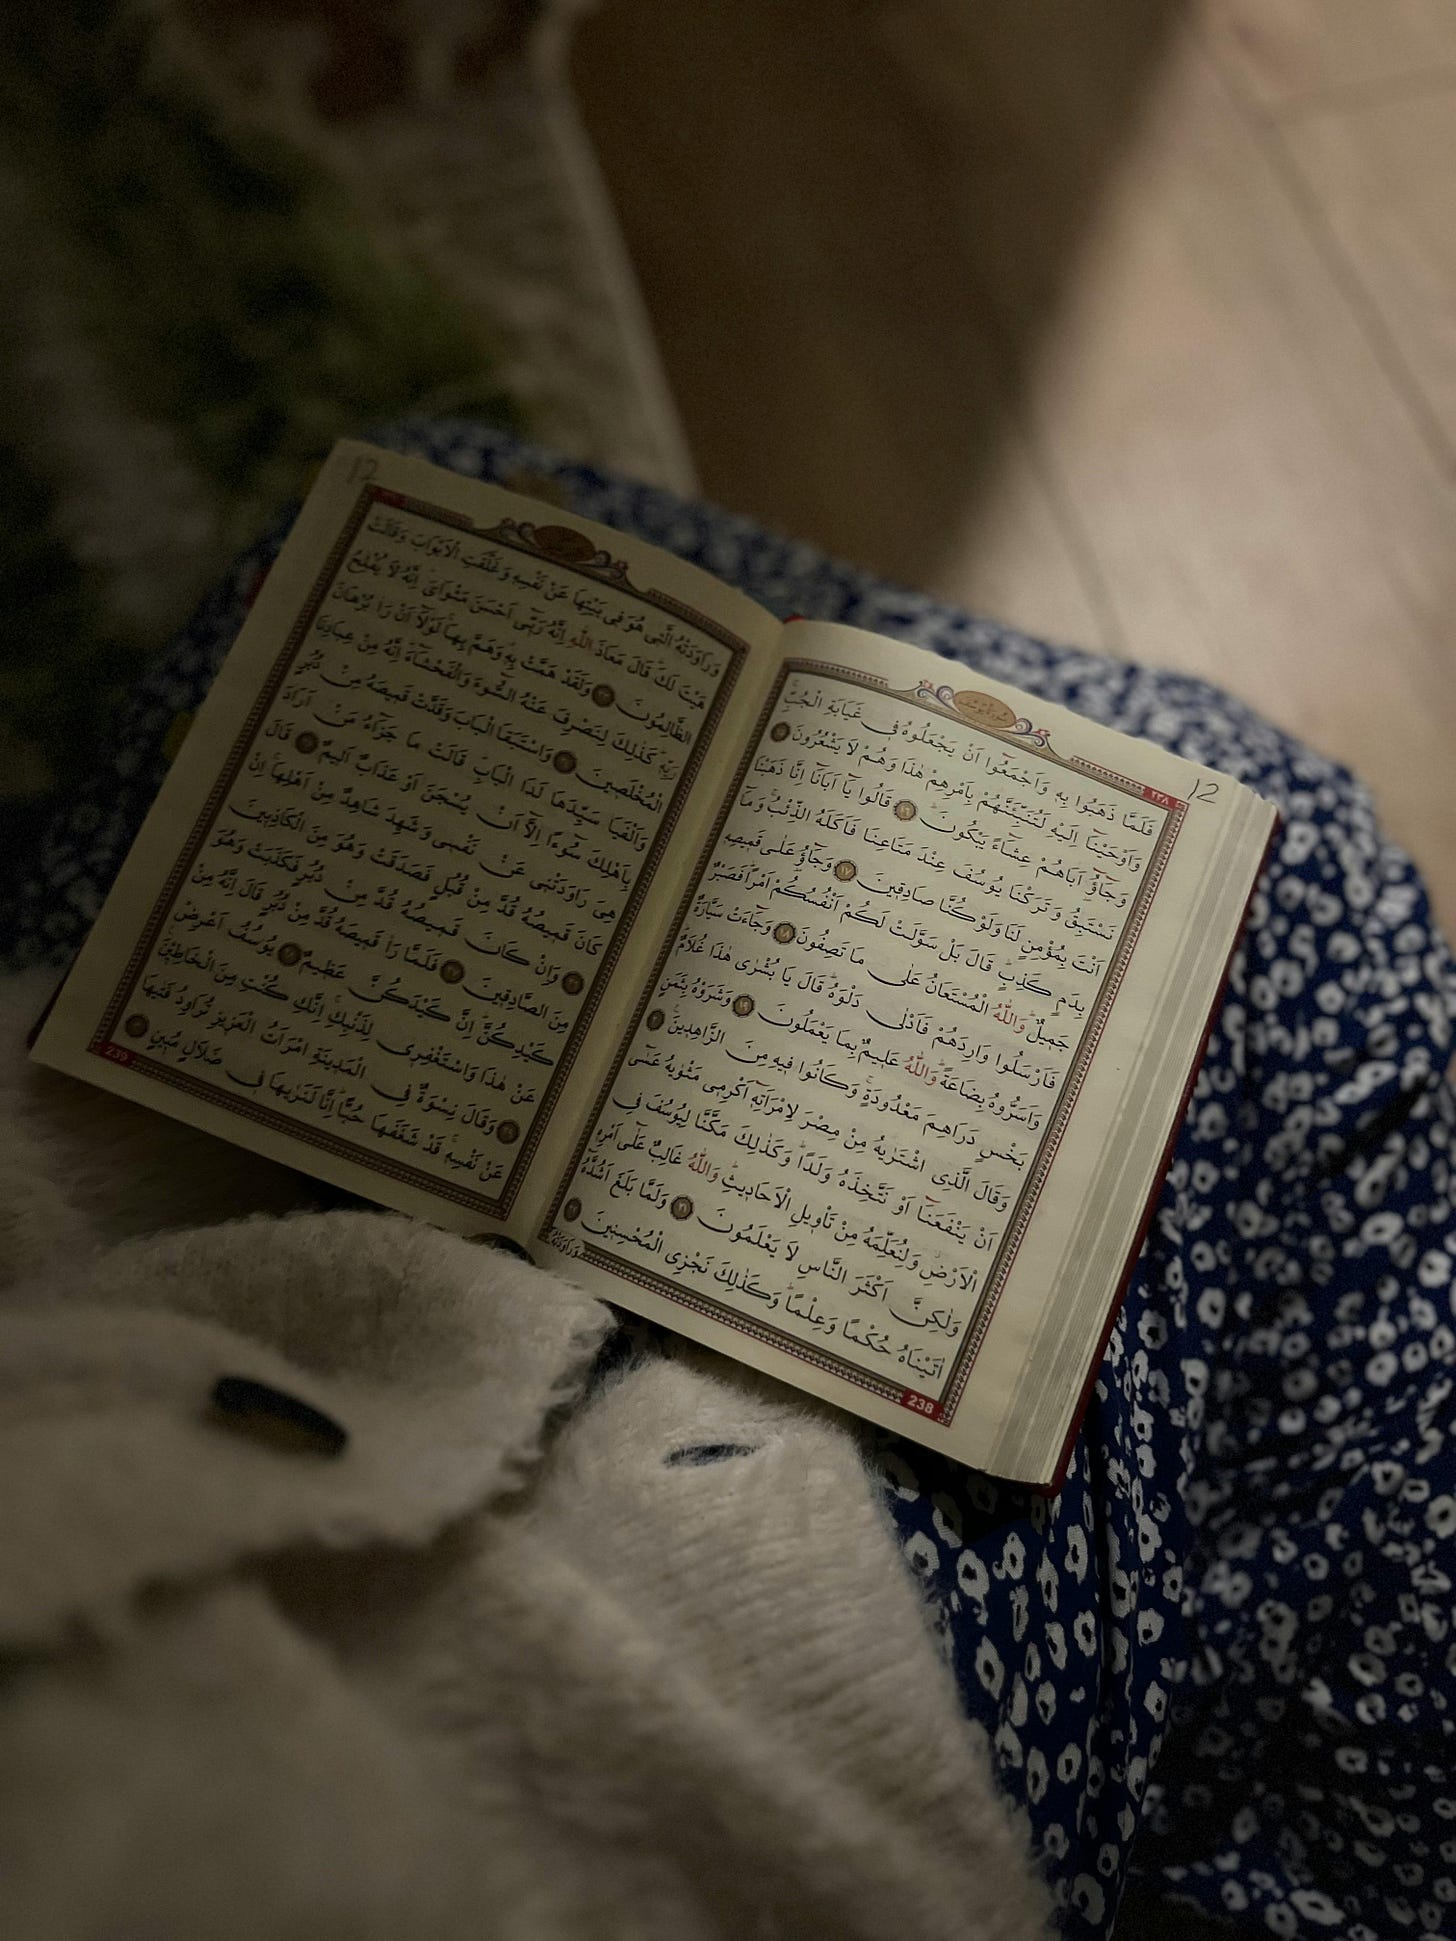 سورة يوسف
٢٣٨
12
فَلَمَّا ذَهَبُوا بِهِ وَاَجْمَعُٓوا اَنْ يَجْعَلُوهُ فِي غَيَابَةِ الْجُبِّۚ
وَاَوْحَيْنَٓا اِلَيْهِ لَتُنَبِّئَنَّهُمْ بِاَمْرِهِمْ هٰذَا وَهُمْ لَا يَشْعُرُونَ ١٥
وَجَٓاؤُٓ اَبَاهُمْ عِشَٓاءً يَبْكُونَۜ ١٦ قَالُوا يَٓا اَبَانَٓا اِنَّا ذَهَبْنَا
نَسْتَبِقُ وَتَرَكْنَا يُوسُفَ عِنْدَ مَتَاعِنَا فَاَكَلَهُ الذِّئْبُۚ وَمَٓا
اَنْتَ بِمُؤْمِنٍ لَنَا وَلَوْ كُنَّا صَادِقِينَ ١٧ وَجَٓاؤُ۫ عَلٰى قَمِيصِهِ
بِدَمٍ كَذِبٍۜ قَالَ بَلْ سَوَّلَتْ لَكُمْ اَنْفُسُكُمْ اَمْرًاۜ فَصَبْرٌ
جَمِيلٌۜ وَاللّٰهُ الْمُسْتَعَانُ عَلٰى مَا تَصِفُونَ ١٨ وَجَٓاءَتْ سَيَّارَةٌ
فَاَرْسَلُوا وَارِدَهُمْ فَاَدْلٰى دَلْوَهُۜ قَالَ يَا بُشْرٰى هٰذَا غُلَامٌۜ
وَاَسَرُّوهُ بِضَاعَةًۜ وَاللّٰهُ عَلِيمٌ بِمَا يَعْمَلُونَ ١٩ وَشَرَوْهُ بِثَمَنٍ
بَخْسٍ دَرَاهِمَ مَعْدُودَةٍۚ وَكَانُوا فِيهِ مِنَ الزَّاهِدِينَ۟ ٢٠
وَقَالَ الَّذِي اشْتَرٰيهُ مِنْ مِصْرَ لِامْرَاَتِهِٓ اَكْرِمِي مَثْوٰيهُ عَسٰٓى
اَنْ يَنْفَعَنَٓا اَوْ نَتَّخِذَهُ وَلَدًاۜ وَكَذٰلِكَ مَكَّنَّا لِيُوسُفَ فِي
الْاَرْضِۘ وَلِنُعَلِّمَهُ مِنْ تَأْوِيلِ الْاَحَادِيثِۜ وَاللّٰهُ غَالِبٌ عَلٰٓى اَمْرِهِ
وَلٰكِنَّ اَكْثَرَ النَّاسِ لَا يَعْلَمُونَ ٢١ وَلَمَّا بَلَغَ اَشُدَّهُٓ
اٰتَيْنَاهُ حُكْمًا وَعِلْمًاۜ وَكَذٰلِكَ نَجْزِي الْمُحْسِنِينَ ٢٢
وَرَاوَدَتْهُ
238
12
وَرَاوَدَتْهُ الَّتِي هُوَ فِي بَيْتِهَا عَنْ نَفْسِهِ وَغَلَّقَتِ الْاَبْوَابَ وَقَالَتْ
هَيْتَ لَكَۜ قَالَ مَعَاذَ اللّٰهِ اِنَّهُ رَبِّٓي اَحْسَنَ مَثْوَايَۜ اِنَّهُ لَا يُفْلِحُ
الظَّالِمُونَ ٢٣ وَلَقَدْ هَمَّتْ بِهِ وَهَمَّ بِهَاۚ لَوْلَٓا اَنْ رَاٰ بُرْهَانَ
رَبِّهِۜ كَذٰلِكَ لِنَصْرِفَ عَنْهُ السُّٓوءَ وَالْفَحْشَٓاءَۜ اِنَّهُ مِنْ عِبَادِنَا
الْمُخْلَصِينَ ٢٤ وَاسْتَبَقَا الْبَابَ وَقَدَّتْ قَمِيصَهُ مِنْ دُبُرٍ
وَاَلْفَيَا سَيِّدَهَا لَدَا الْبَابِۜ قَالَتْ مَا جَزَٓاءُ مَنْ اَرَادَ
بِاَهْلِكَ سُٓوءًا اِلَّٓا اَنْ يُسْجَنَ اَوْ عَذَابٌ اَلِيمٌ ٢٥ قَالَ
هِيَ رَاوَدَتْنِي عَنْ نَفْسِي وَشَهِدَ شَاهِدٌ مِنْ اَهْلِهَاۚ اِنْ
كَانَ قَمِيصُهُ قُدَّ مِنْ قُبُلٍ فَصَدَقَتْ وَهُوَ مِنَ الْكَاذِبِينَ
٢٦ وَاِنْ كَانَ قَمِيصُهُ قُدَّ مِنْ دُبُرٍ فَكَذَبَتْ وَهُوَ
مِنَ الصَّادِقِينَ ٢٧ فَلَمَّا رَاٰ قَمِيصَهُ قُدَّ مِنْ دُبُرٍ قَالَ اِنَّهُ مِنْ
كَيْدِكُنَّۜ اِنَّ كَيْدَكُنَّ عَظِيمٌ ٢٨ يُوسُفُ اَعْرِضْ
عَنْ هٰذَا وَاسْتَغْفِرِي لِذَنْبِكِۚ اِنَّكِ كُنْتِ مِنَ الْخَاطِـِٔينَ۟
٢٩ وَقَالَ نِسْوَةٌ فِي الْمَدِينَةِ امْرَاَتُ الْعَزِيزِ تُرَاوِدُ فَتٰيهَا
عَنْ نَفْسِهِۚ قَدْ شَغَفَهَا حُبًّاۜ اِنَّا لَنَرٰيهَا فِي ضَلَالٍ مُبِينٍ ٣٠
239